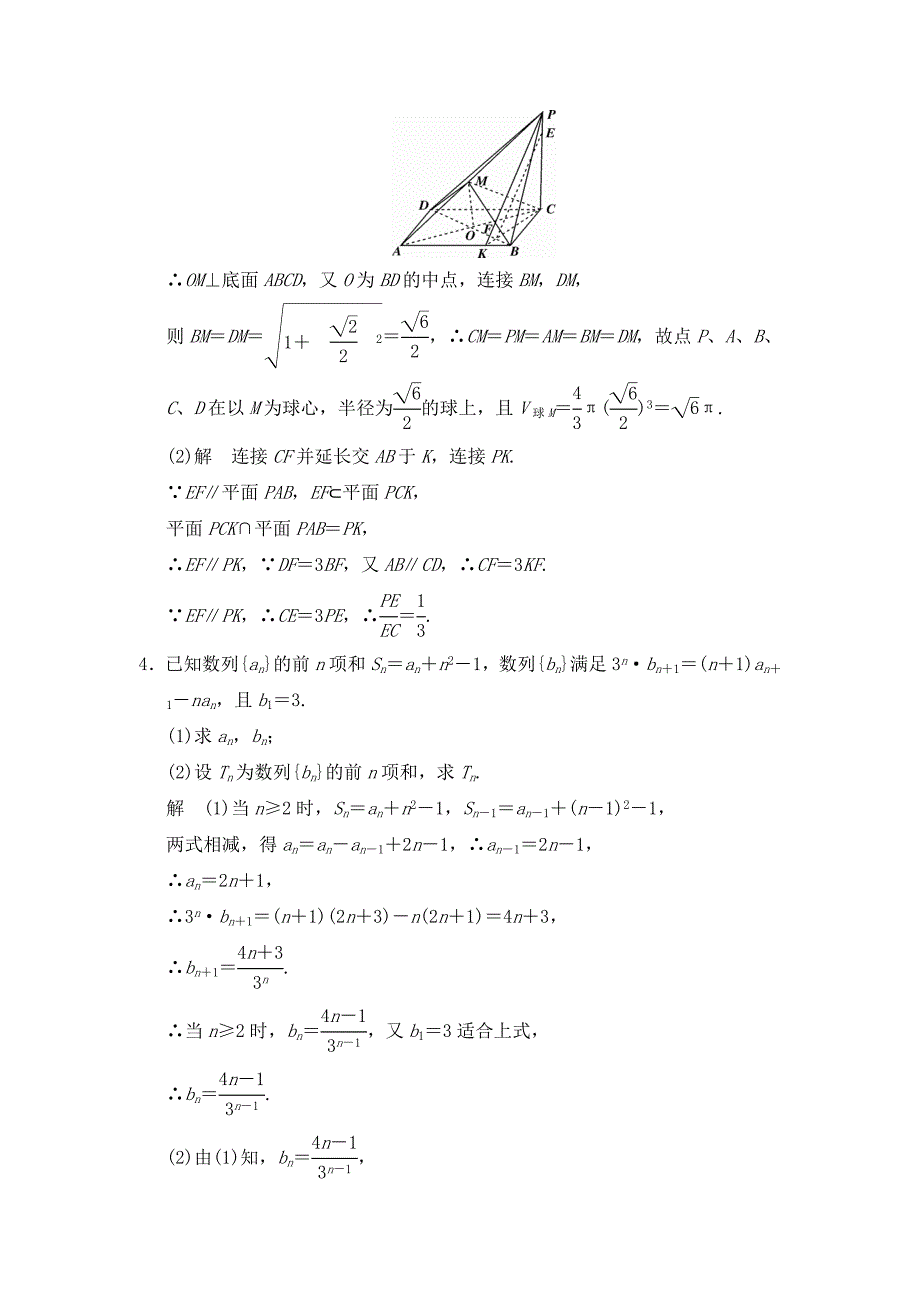 P
E
M
D
C
O
F
A
K
B
∴OM⊥底面ABCD，又O为BD的中点，连接BM，DM，
则BM＝DM＝√(1＋(√2/2)2)＝√6/2，∴CM＝PM＝AM＝BM＝DM，故点P、A、B、
C、D在以M为球心，半径为√6/2的球上，且V球M＝4/3π(√6/2)³＝√6π.
(2)解　连接CF并延长交AB于K，连接PK.
∵EF∥平面PAB，EF⊂平面PCK，
平面PCK∩平面PAB＝PK，
∴EF∥PK，∵DF＝3BF，又AB∥CD，∴CF＝3KF.
∵EF∥PK，∴CE＝3PE，∴PE/EC＝1/3.
4．已知数列{aₙ}的前n项和Sₙ＝aₙ＋n²－1，数列{bₙ}满足3ⁿ·bₙ₊₁＝(n＋1)aₙ₊
₁－naₙ，且b₁＝3.
(1)求aₙ，bₙ；
(2)设Tₙ为数列{bₙ}的前n项和，求Tₙ.
解　(1)当n≥2时，Sₙ＝aₙ＋n²－1，Sₙ₋₁＝aₙ₋₁＋(n－1)²－1，
两式相减，得aₙ＝aₙ－aₙ₋₁＋2n－1，∴aₙ₋₁＝2n－1，
∴aₙ＝2n＋1，
∴3ⁿ·bₙ₊₁＝(n＋1)(2n＋3)－n(2n＋1)＝4n＋3，
∴bₙ₊₁＝(4n＋3)/3ⁿ.
∴当n≥2时，bₙ＝(4n－1)/3ⁿ⁻¹，又b₁＝3适合上式，
∴bₙ＝(4n－1)/3ⁿ⁻¹.
(2)由(1)知，bₙ＝(4n－1)/3ⁿ⁻¹，